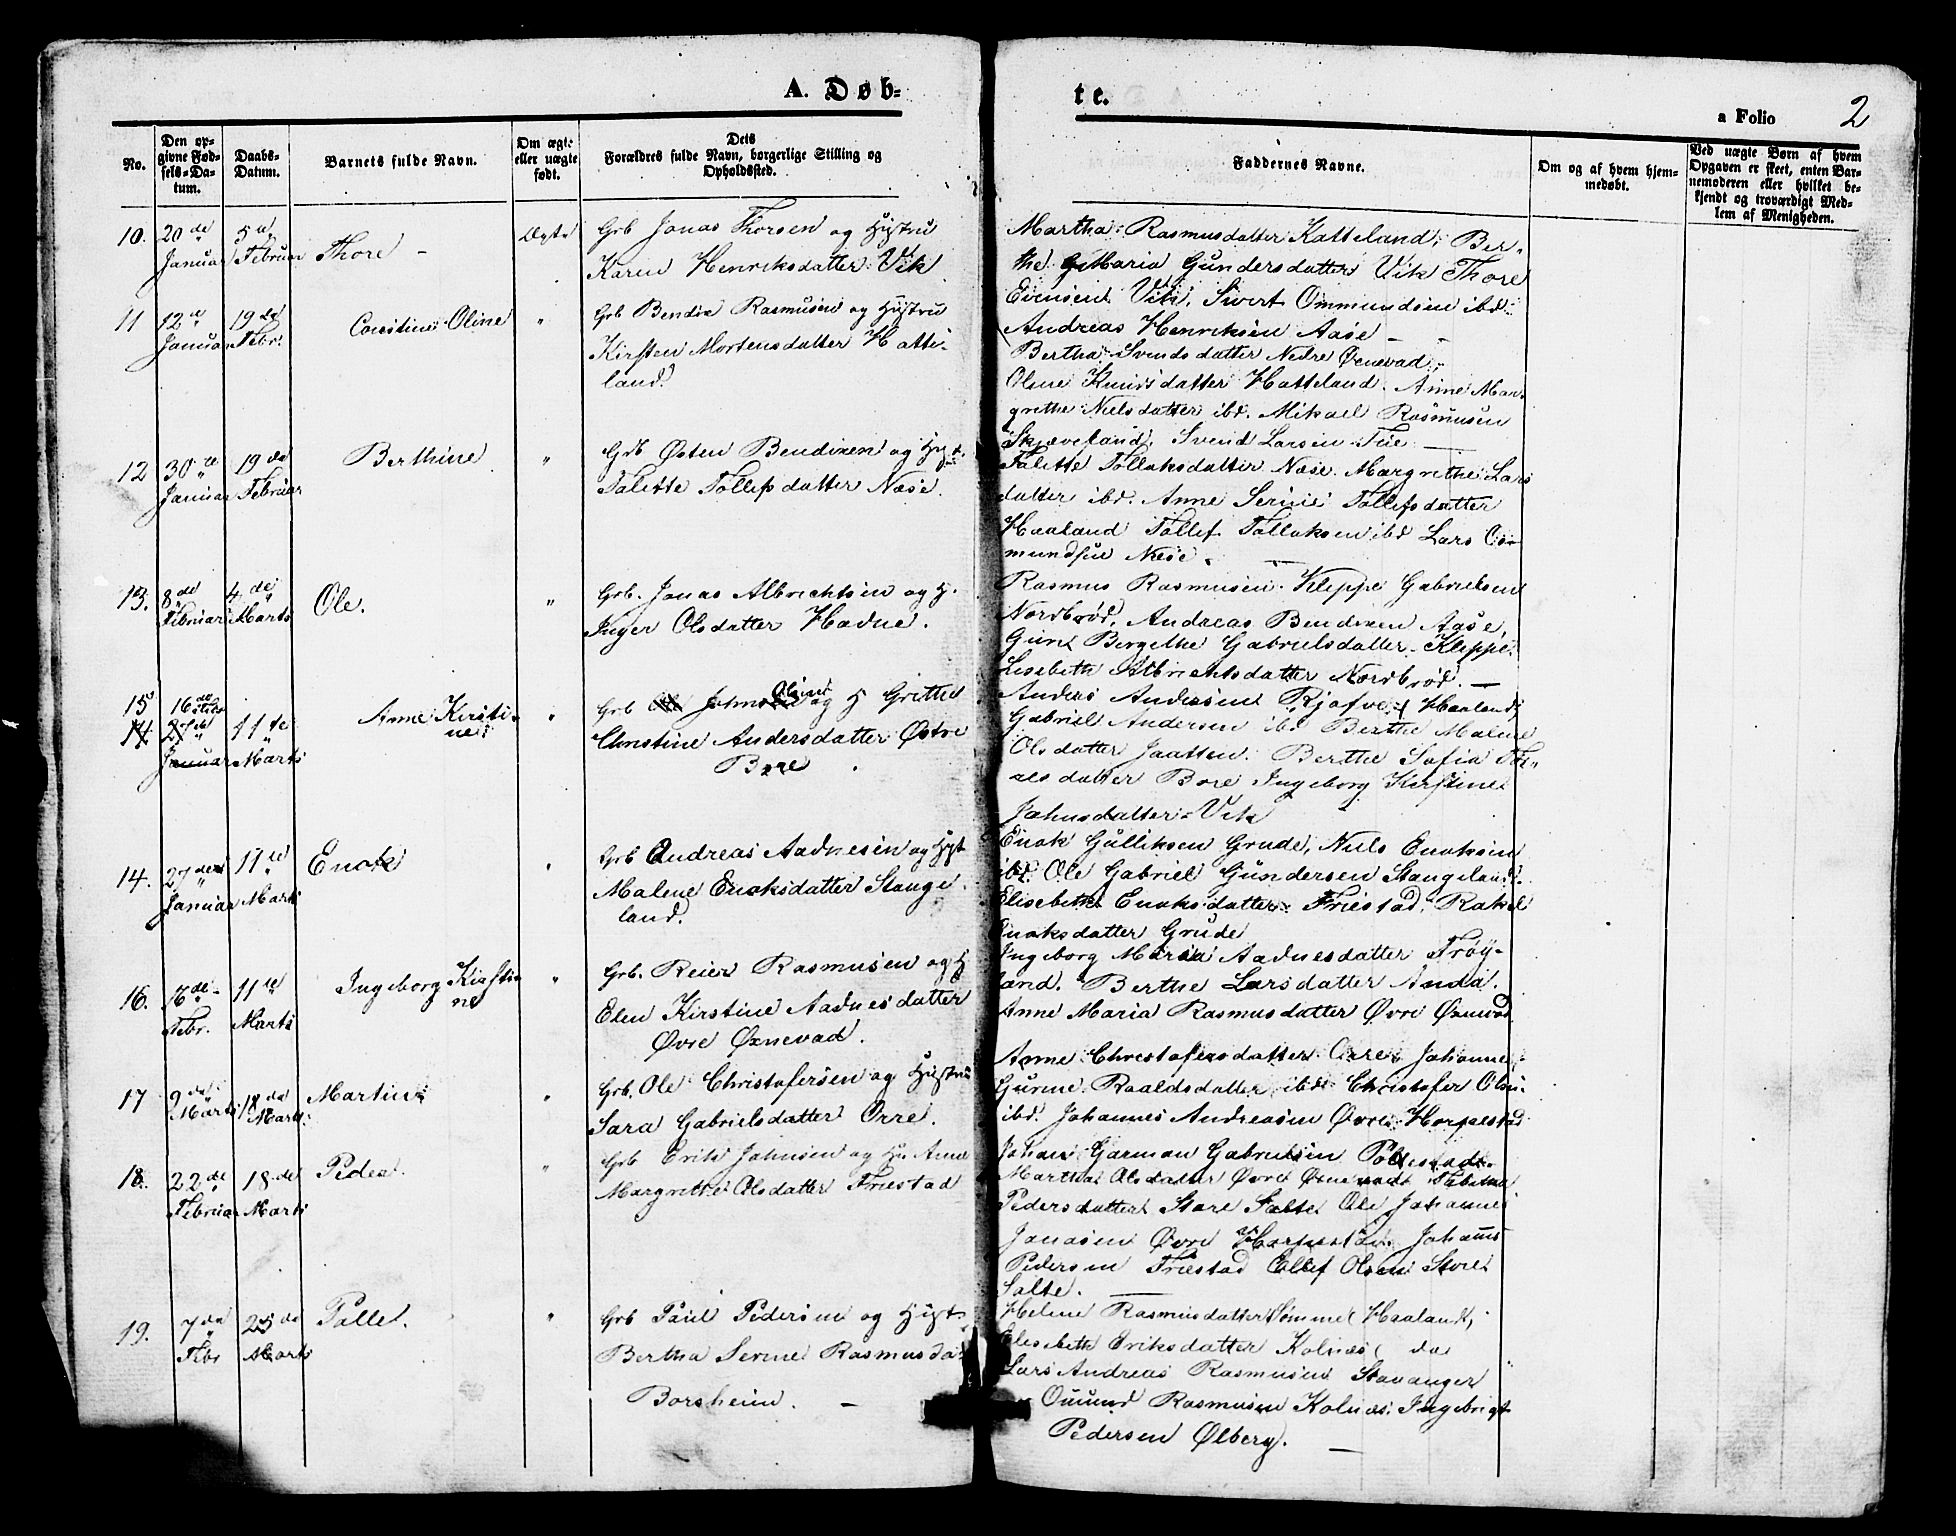 A. Døb=
te.
a Folio 2
No.
Den op-
givne Fød-
sels-Da-
tum.
Daabs-
Datum.
Barnets fulde Navn.
Om ægte
eller uægte
født.
Dets
Forældres fulde Navn, borgerlige Stilling og
Opholdssted.
Faddernes Navne.
Om og af hvem hjem-
medøbt.
Ved uægte Børn af hvem
Opgaven er skeet, enten Bar-
nemoderen eller hvilket be-
kjendt og troværdigt Med-
lem af Menigheden.
10. 20de 5te Thore – Ægte Grb Jonas Thorsen og Hustru
Januar Februar Karen Henriksdatter Vik
Martha Rasmusdatter Hatteland, Ber-
the Maria Gundersdatter Vik Thore
Evensen Vik, Sivert Ommundsen ibd.
Andreas Henriksen Aase – –
11 12te 19de Oline " Grb Bendix Rasmusen og Hustru
Januar Febr. Kirsten Mortensdatter Hatte-
land.
Bertha Svendsdatter Nedre Øxnevad,
Oline Knudsdatter Hatteland. Anne Mar-
grethe Nielsdatter ibd. Mikael Rasmusen
Skjæveland, Svend Larsen Tue –
12 30te 19de Berthine " Grb Østen Bendixen og Hust.
Januar Februar Talette Tollefsdatter Næse.
Talette Tollaksdatter Næse. Margrethe Lars
datter ibd. Anne Serine Tollefsdatter
Haaland Tollef Tollaksen ibd Lars
Næse. –
13. 8de 4de Ole. " Grb. Jonas Albrechtsen og H.
Februar Marts Inger Olsdatter Hadne.
Rasmus Rasmusen Kleppe Gabrielsen
Nordbrød, Andreas Bendixen Aase,
Bergithe Gabrielsdatter Kleppe,
Lisebeth Albrechtsdatter Nordbrød. –
15 16de Febr
14 27de 11te Anne Kirsti- " Grb Olsen og H Grethe
Januar Marts ne Christine Andersdatter Østre
Bore .
Anders Andersen (Haaland)
Gabriel Andersen ibd Berthe Malene
Olsdatter Jaatten. Berthe Sofia
datter Bore Ingeborg Kirstine
Jahnsdatter Vik
14. 27de 11te Enok " Grb Andreas Aadnesen og Hust
Januar Marts Malene Enoksdatter Stange-
land.
Enok Gulliksen Grude, Niels Enoksen
ibd. Ole Gabriel Gundersen Stangeland.
Elisebeth Enoksdatter Friestad, Rakel
Enoksdatter Grude
16. 16de 11te Ingeborg Kirsti- " Grb. Reier Rasmusen og H
Febr. Marts ne Elen Kirstine Aadnesdatter
Øvre Øxnevad.
Ingeborg Maria Aadnesdatter Frøy-
land. Berthe Larsdatter Anda.
Anne Maria Rasmusdatter Øvre Øxnevad
17 2de 18de Martin " Grb. Ole Christofersen og Hustru
Marts Marts Sara Gabrielsdatter Orre.
Anne Christofersdatter Orre, Johanne
Gurine Raaldsdatter ibd. Christofer Olsen
ibd. Johannes Andreasen Øvre Horpestad
Johan Garman Gabrielsen
18. 22de 18de Peder. " Grb Erik Jahnsen og Hu Anne
Februar Marts Margrethe Olsdatter Friestad
Martha Olsdatter Øvre Øxnevad Tabitha
Pedersdatter Store Salte Ole Johannes
Jonasen Øvre Horpestad Johannes
Pedersen Friestad Ollef Olsen Store
Salte. –
19. 7de 25de Palle. " Grb Paul Pedersen og Hust.
Febr Marts Bertha Serine Rasmusda-
Borsheim. –
Heline Rasmusdatter Sømme (Haaland),
Elisebeth Eriksdatter Kolnes ( do
Lars Andreas Rasmusen Stavanger
Omund Rasmusen Kolnes. Ingebrigt
Pedersen Ølberg. –